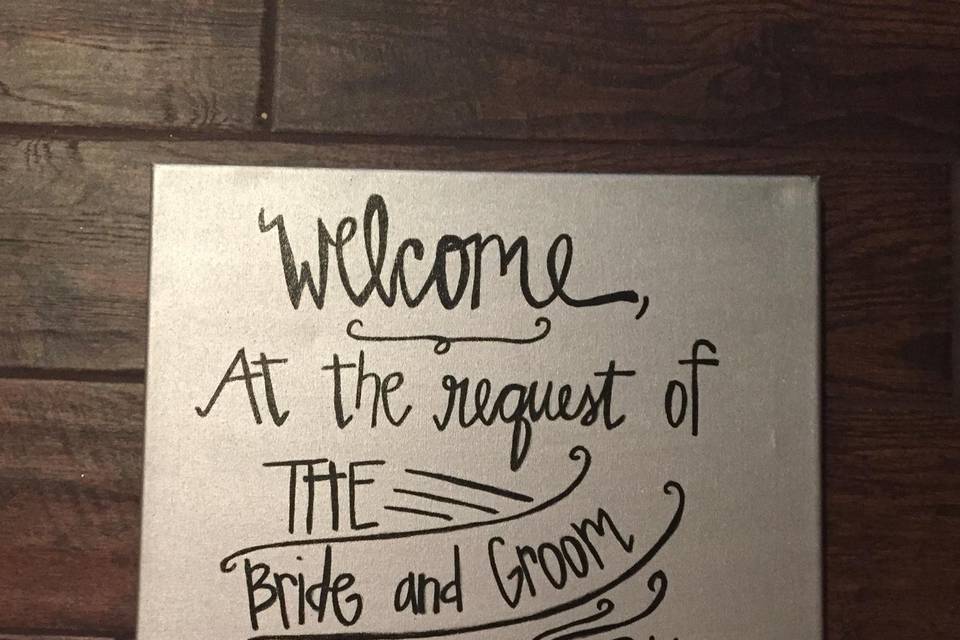 Welcome,
At the request of
THE
Bride and Groom